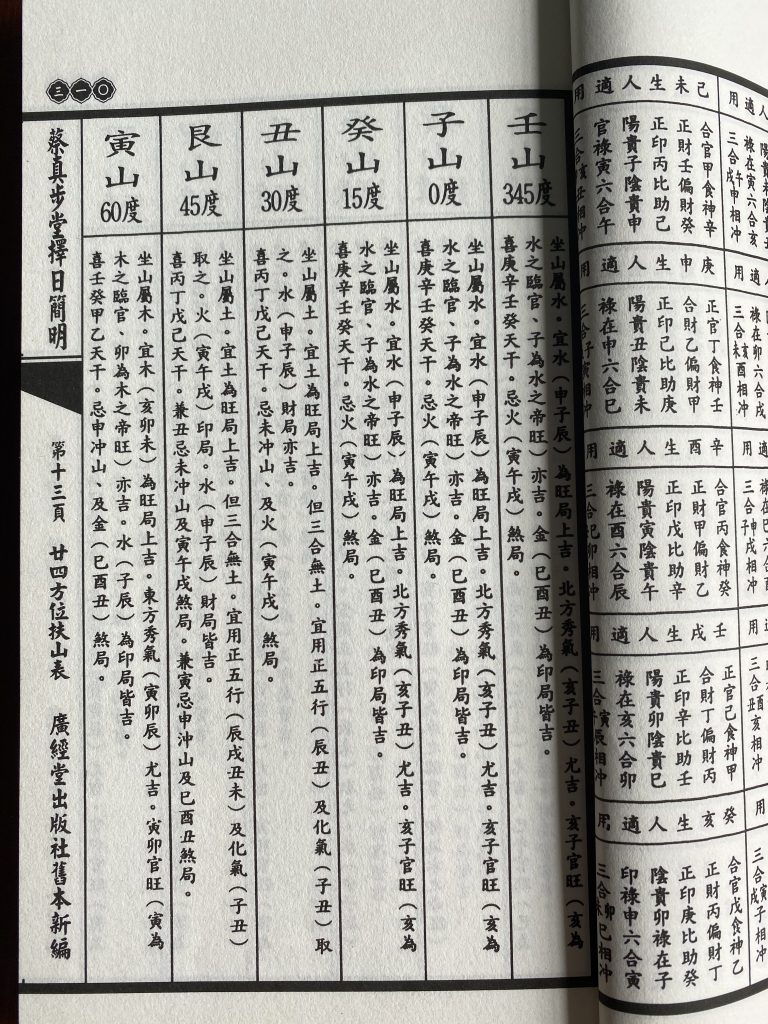 祿在寅六合亥
祿在卯六合戌
己未生人適用
合官甲食神辛
正財壬偏財癸
正印丙比助己
陽貴子陰貴申
官祿寅六合午
庚申生人適用
正官丁食神壬
合財乙偏財甲
正印己比助庚
陽貴丑陰貴未
祿在申六合巳
辛酉生人適用
合官丙食神癸
正財甲偏財乙
正印戊比助辛
陽貴寅陰貴午
祿在酉六合辰
壬戌生人適用
正官己食神甲
合財丁偏財丙
正印辛比助壬
陽貴卯陰貴巳
祿在亥六合卯
癸亥生人適用
合官戊食神乙
正財丙偏財丁
正印庚比助癸
陰貴卯祿在子
印祿申六合寅
三一〇
壬山
345度
坐山屬水。宜水（申子辰）為旺局上吉。北方秀氣（亥子丑）尤吉。亥子官旺（亥為
水之臨官、子為水之帝旺）亦吉。金（巳酉丑）為印局皆吉。
喜庚辛壬癸天干。忌火（寅午戌）煞局。
子山
0度
坐山屬水。宜水（申子辰）為旺局上吉。北方秀氣（亥子丑）尤吉。亥子官旺（亥為
水之臨官、子為水之帝旺）亦吉。金（巳酉丑）為印局皆吉。
喜庚辛壬癸天干。忌火（寅午戌）煞局。
癸山
15度
坐山屬水。宜水（申子辰）為旺局上吉。北方秀氣（亥子丑）尤吉。亥子官旺（亥為
水之臨官、子為水之帝旺）亦吉。金（巳酉丑）為印局皆吉。
喜庚辛壬癸天干。忌火（寅午戌）煞局。
丑山
30度
坐山屬土。宜土為旺局上吉。但三合無土。宜用正五行（辰丑）及化氣（子丑）取
之。水（申子辰）財局亦吉。
喜丙丁戊己天干。忌未沖山、及火（寅午戌）煞局。
艮山
45度
坐山屬土。宜土為旺局上吉。但三合無土。宜用正五行（辰戌丑未）及化氣（子丑）
取之。火（寅午戌）印局。水（申子辰）財局皆吉。
喜丙丁戊己天干。兼丑忌未沖山及寅午戌煞局。兼寅忌申沖山及巳酉丑煞局。
寅山
60度
坐山屬木。宜木（亥卯未）為旺局上吉。東方秀氣（寅卯辰）尤吉。寅卯官旺（寅為
木之臨官、卯為木之帝旺）亦吉。水（子辰）為印局皆吉。
喜壬癸甲乙天干。忌申沖山、及金（巳酉丑）煞局。
蔡真步堂擇日簡明
第十三頁 廿四方位扶山表 廣經堂出版社舊本新編